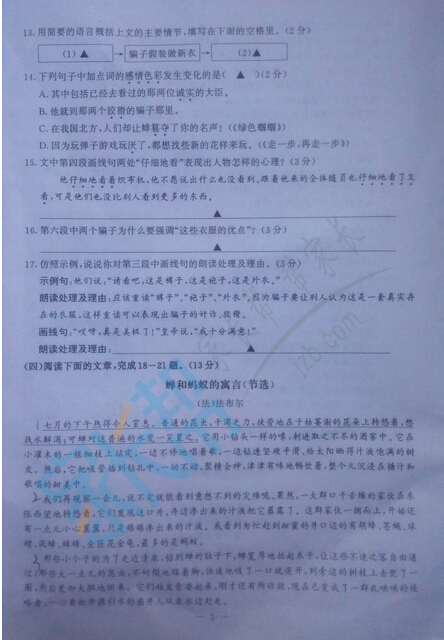 13.用简要的语言概括上文的主要情节,填写在下面的空格里。(2分)
(1)▲ → 骗子假装做新衣 → (2)▲
14.下列句子中加点词的感情色彩发生变化的是( ▲ )(2分)
A.其中包括已经去看过的那两位诚实的大臣。
B.他就到那两个狡猾的骗子那里。
C.在我国北方,人们却让蝉篡夺了你的名声!(《绿色蝈蝈》)
D.因为玩弹子游戏玩厌了,都想找些新的花样来玩。(《走一步,再走一步》)
15.文中第四段画线句两处“仔细地看”表现出人物怎样的心理?(3分)
他仔细地看着织布机,他不愿说出什么也没看到。跟着他来的全体随员也仔细地看了又
看,可是他们也没比别人看到更多的东西。
▲
16.第六段中两个骗子为什么要强调“这些衣服的优点”?(3分)
▲
17.仿照示例,说说你对第三段中画线句的朗读处理及理由。(3分)
示例句:他们说,“请看吧,这是裤子,这是袍子,这是外衣。”
朗读处理及理由:应该重读“裤子”、“袍子”、“外衣”。因为骗子要让别人认为这是一套真实存
在的衣服,这样重读可以表现出骗子的奸诈、狡猾。
画线句:“哎呀,真是美极了!”皇帝说,“我十分满意!”
朗读处理及理由: ▲
(四)阅读下面的文章,完成18—21题。(13分)
蝉和蚂蚁的寓言(节选)
(法)法布尔
七月的下午热得令人窒息。普通的昆虫,干渴乏力,疲劳地在干枯萎谢的花朵上转悠着,想
找水解渴;可蝉对这普遍的水荒一笑置之。它用小钻头一样的喙,刺进取之不尽的酒窖中。它在
小灌木的一根细枝上站定,一边不停地唱着歌,一边钻透坚硬平滑,给太阳晒得汁液饱满的树
皮。然后,它把吸管插到钻孔中,一动不动,聚精会神,津津有味地畅饮着,整个儿沉浸在糖汁和
歌唱的甜美中。
我们再观察一会儿,说不定就能看到意想不到的灾难呢。果然,一大群口干舌燥的家伙在东
张西望地转悠着,它们发现这口井,井边渗出来的汁液把它暴露了。这群家伙一拥而上,开始还
有一点儿小心翼翼,只是舔舔渗出来的汁液。我看到匆忙赶到甜蜜的井口边的有胡蜂、苍蝇、球
螋、泥蜂、蛛蜂、金匠花金龟,最多的是蚂蚁。
那些小个子的为了走近清泉,钻到蝉的肚子下,蝉宽厚地抬起爪子,让这些不速之客自由通
过;那些大一点儿的昆虫,不耐烦地跺着脚,快速地吸了一口就离开,到旁边的树枝上去兜了一
圈,然后更加大胆地回来。